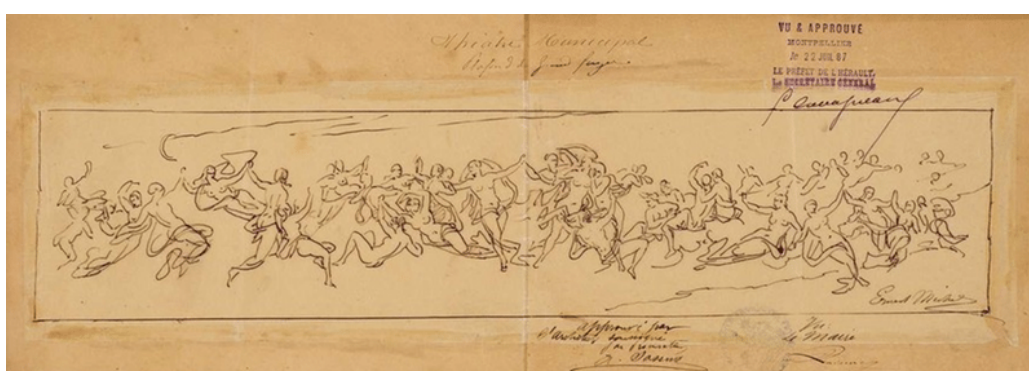 Théâtre Municipal
Plafond du Grand foyer
VU & APPROUVÉ
MONTPELLIER
le 22 JUIL 87
LE PRÉFET DE L'HÉRAULT,
LE SECRÉTAIRE GÉNÉRAL
Ernest Michel
approuvé par
l'architecte soussigné
Vu
Le Maire